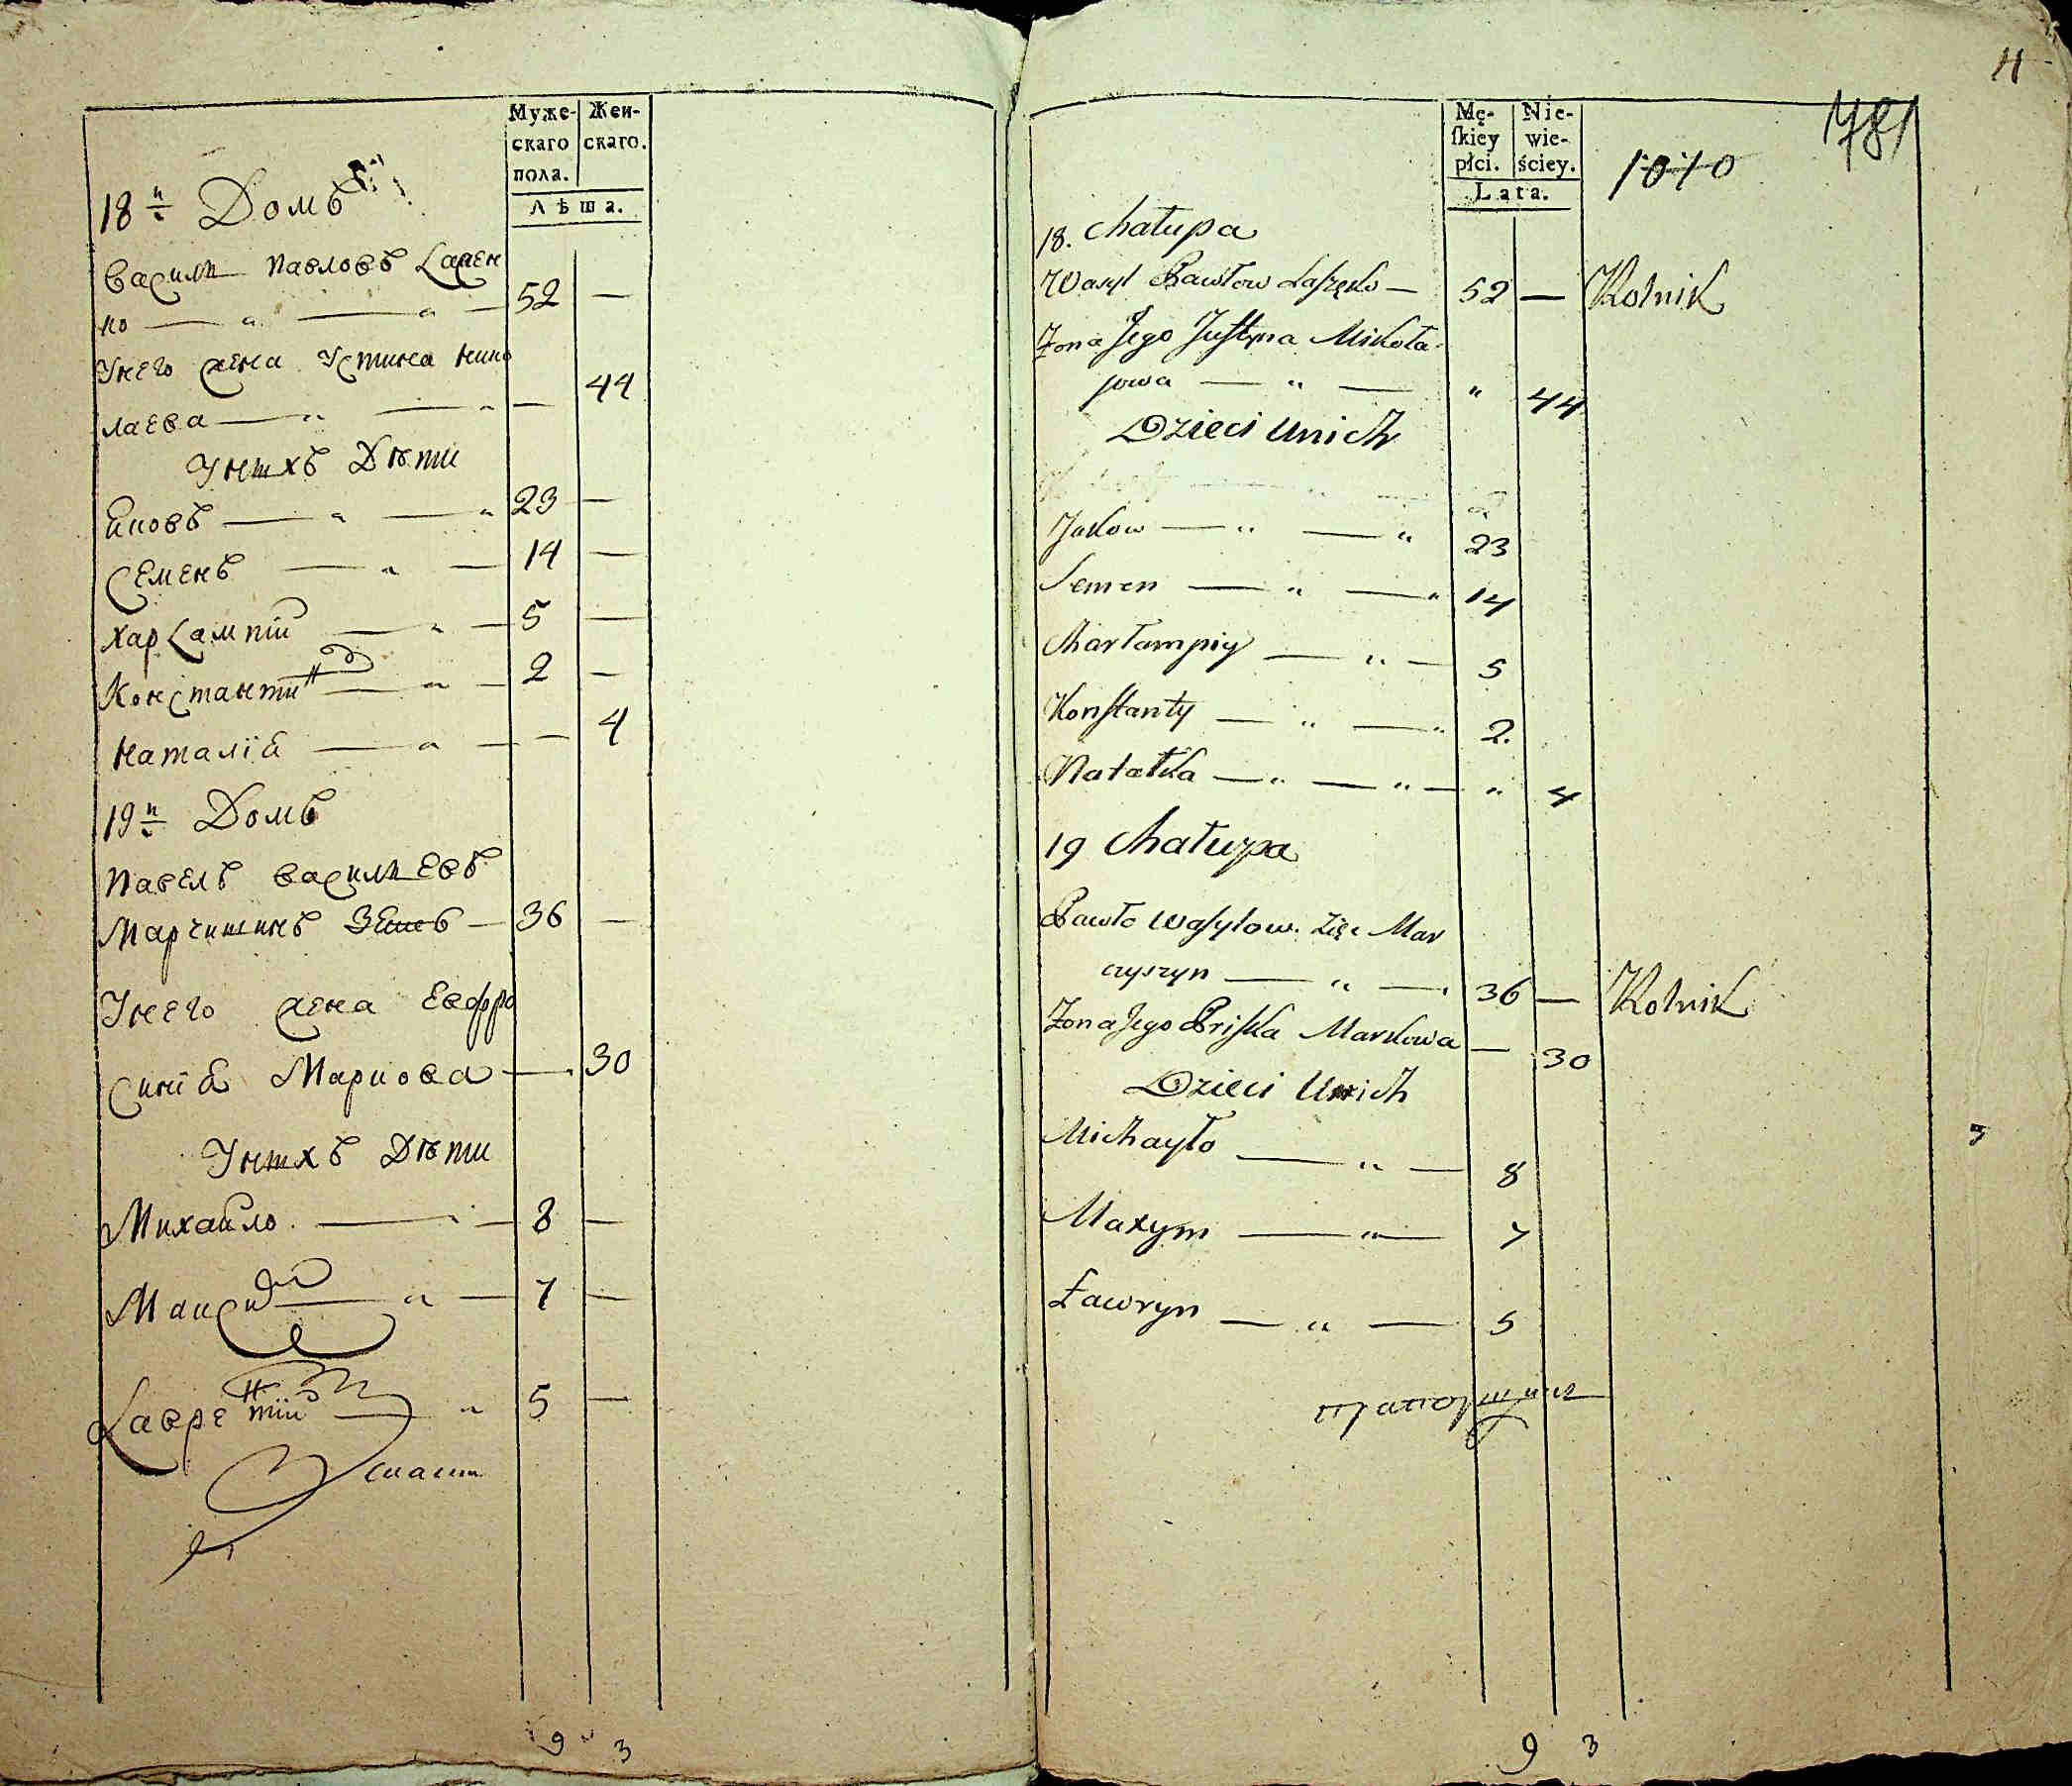 Муже-
скаго
пола.
Жен-
скаго.
Лѣта.
18й Домъ
Василй Павловъ Лащен
ко — " — " — 52 —
Унего жена Устина Нико
лаева — " — " — 44
Унихъ Дѣти
Яковъ — " — " 23 —
Семенъ — " — 14 —
Харлампій — " — 5 —
Константин — " — 2 —
Наталія — " — — 4
19й Домъ
Павелъ Василиевъ
Марчишинъ Зять — 36 —
Унего жена Евфро
синія Маркова — 30
Унихъ Дѣти
Михайло — 8 —
Максим — " — 7 —
Лаврентій — " 5 —
9 3
4
781
1010
Mę-
ſkiey
płci.
Nie-
wie-
ściey.
Lata.
18. Chałupa
Wasyl Pawłow Łaszęko — 52 — Rolnik
Żona Jego Juſtyna Mikoła
jowa — " — " 44
Dzieci Unich
Jakow — " — " 23
Semen — " — " 14
Charłampiy — " — 5
Konſtanty — " — " 2.
Natałka — " — " — " 4
19 Chałupa
Pawło Waſylow. Zięć Mar
czyszyn — " — 36 — Rolnik
Żona Jego Priſka Markowa — 30
Dzieci Unich
Michayło — " — 8
Maxym — " — 7
Ławryn — " — 5
9 3